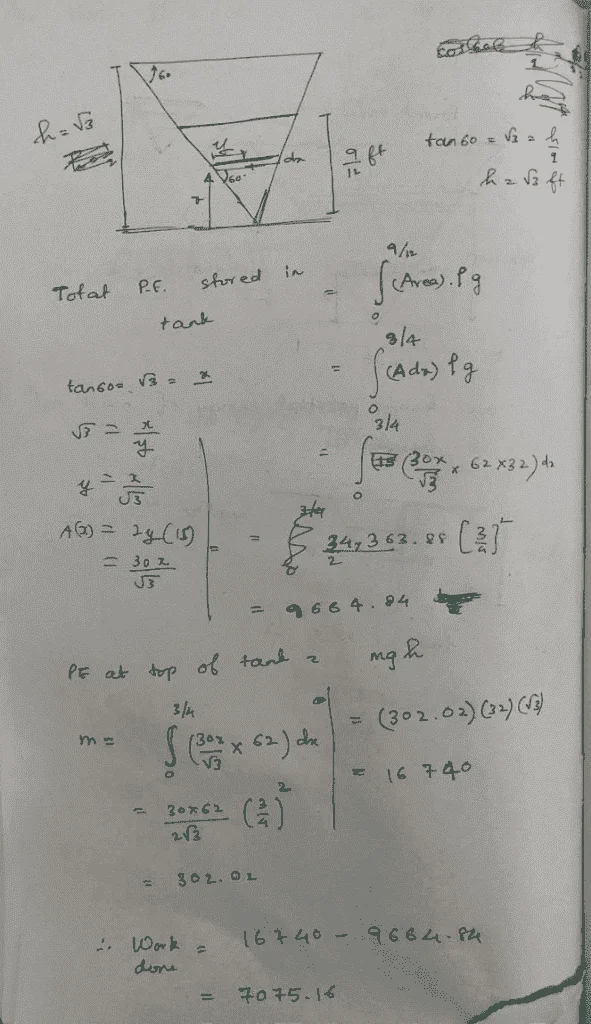 60
h = √3
y
dx
60
x
9/12 ft
tan 60 = √3 = h/1
h = √3 ft
Total P.E. stored in tank = ∫₀^{9/12} (Area).ρg
= ∫₀^{3/4} (A dx) ρg
tan 60 = √3 = x
√3 = x/y
y = x/√3
A(x) = 2y(15)
= 30x/√3
= ∫₀^{3/4} (30x/√3 × 62×32) dx
= 34,363.88/2 [3/4]²
= 9664.84
PE at top of tank = mgh
m = ∫₀^{3/4} (30x/√3 × 62) dx
= 30×62/2√3 (3/4)²
= 302.02
= (302.02)(32)(√3)
= 16740
∴ Work done = 16740 - 9664.84
= 7075.16